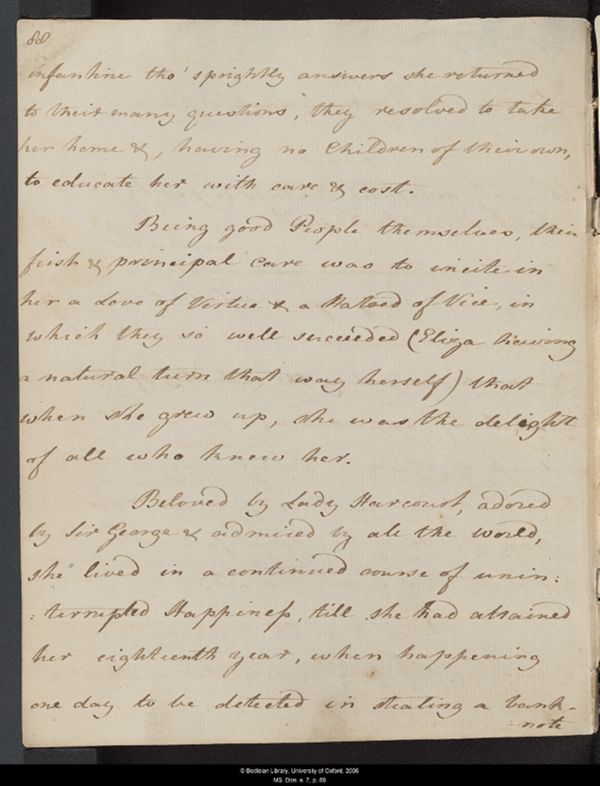 88
infantine tho' sprightly answers she returned
to their many questions, they resolved to take
her home &, having no Children of their own,
to educate her with care & cost.
Being good People themselves, their
first & principal care was to incite in
her a Love of Virtue & a Hatred of Vice, in
which they so well succeeded (Eliza having
a natural turn that way herself) that
when she grew up, she was the delight
of all who knew her.
Beloved by Lady Harcourt, adored
by Sir George & admired by all the world,
she lived in a continued course of unin:
:terrupted Happiness, till she had attained
her eighteenth year, when happening
one day to be detected in stealing a bank-
note
© Bodleian Library, University of Oxford, 2006
MS. Don. e. 7, p. 88